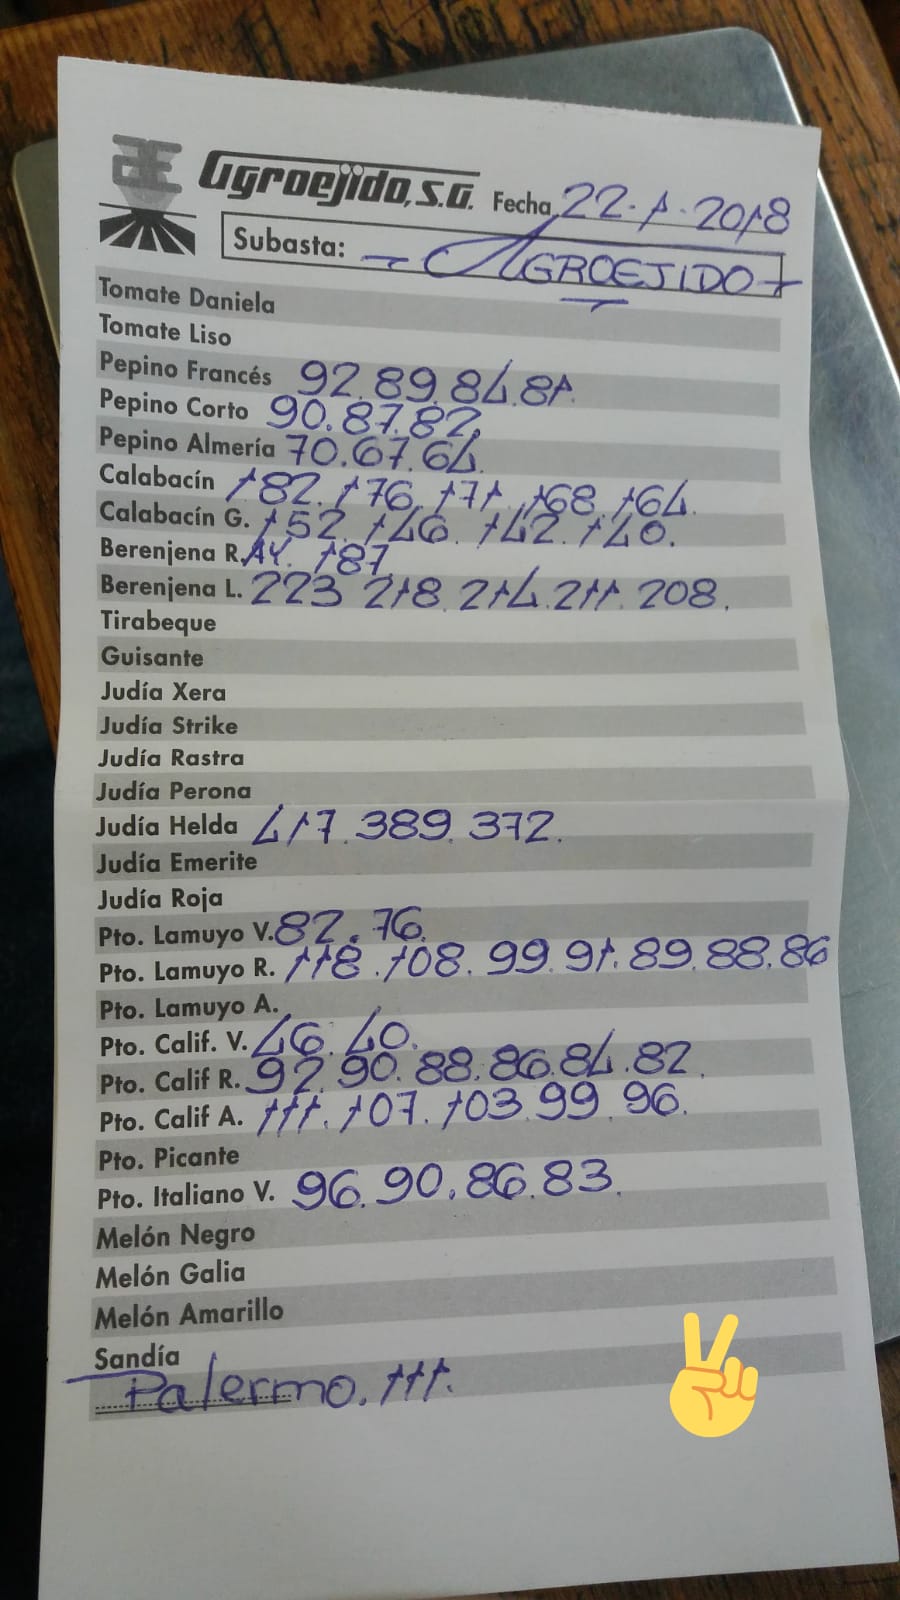 Agroejido, S.A. Fecha 22-1-2018
Subasta: - AGROEJIDO -
Tomate Daniela
Tomate Liso
Pepino Francés 92.89.84.81.
Pepino Corto 90.87.82.
Pepino Almería 70.67.64.
Calabacín 182.176.171.168.164.
Calabacín G. 152.146.142.140.
Berenjena R.AY. 187
Berenjena L. 223.218.214.211.208.
Tirabeque
Guisante
Judía Xera
Judía Strike
Judía Rastra
Judía Perona
Judía Helda 417.389.372.
Judía Emerite
Judía Roja
Pto. Lamuyo V. 82.76.
Pto. Lamuyo R. 118.108.99.91.89.88.86
Pto. Lamuyo A.
Pto. Calif. V. 46.40.
Pto. Calif R. 92.90.88.86.84.82.
Pto. Calif A. 111.107.103.99.96.
Pto. Picante
Pto. Italiano V. 96.90.86.83.
Melón Negro
Melón Galia
Melón Amarillo
Sandía
Palermo. 111.